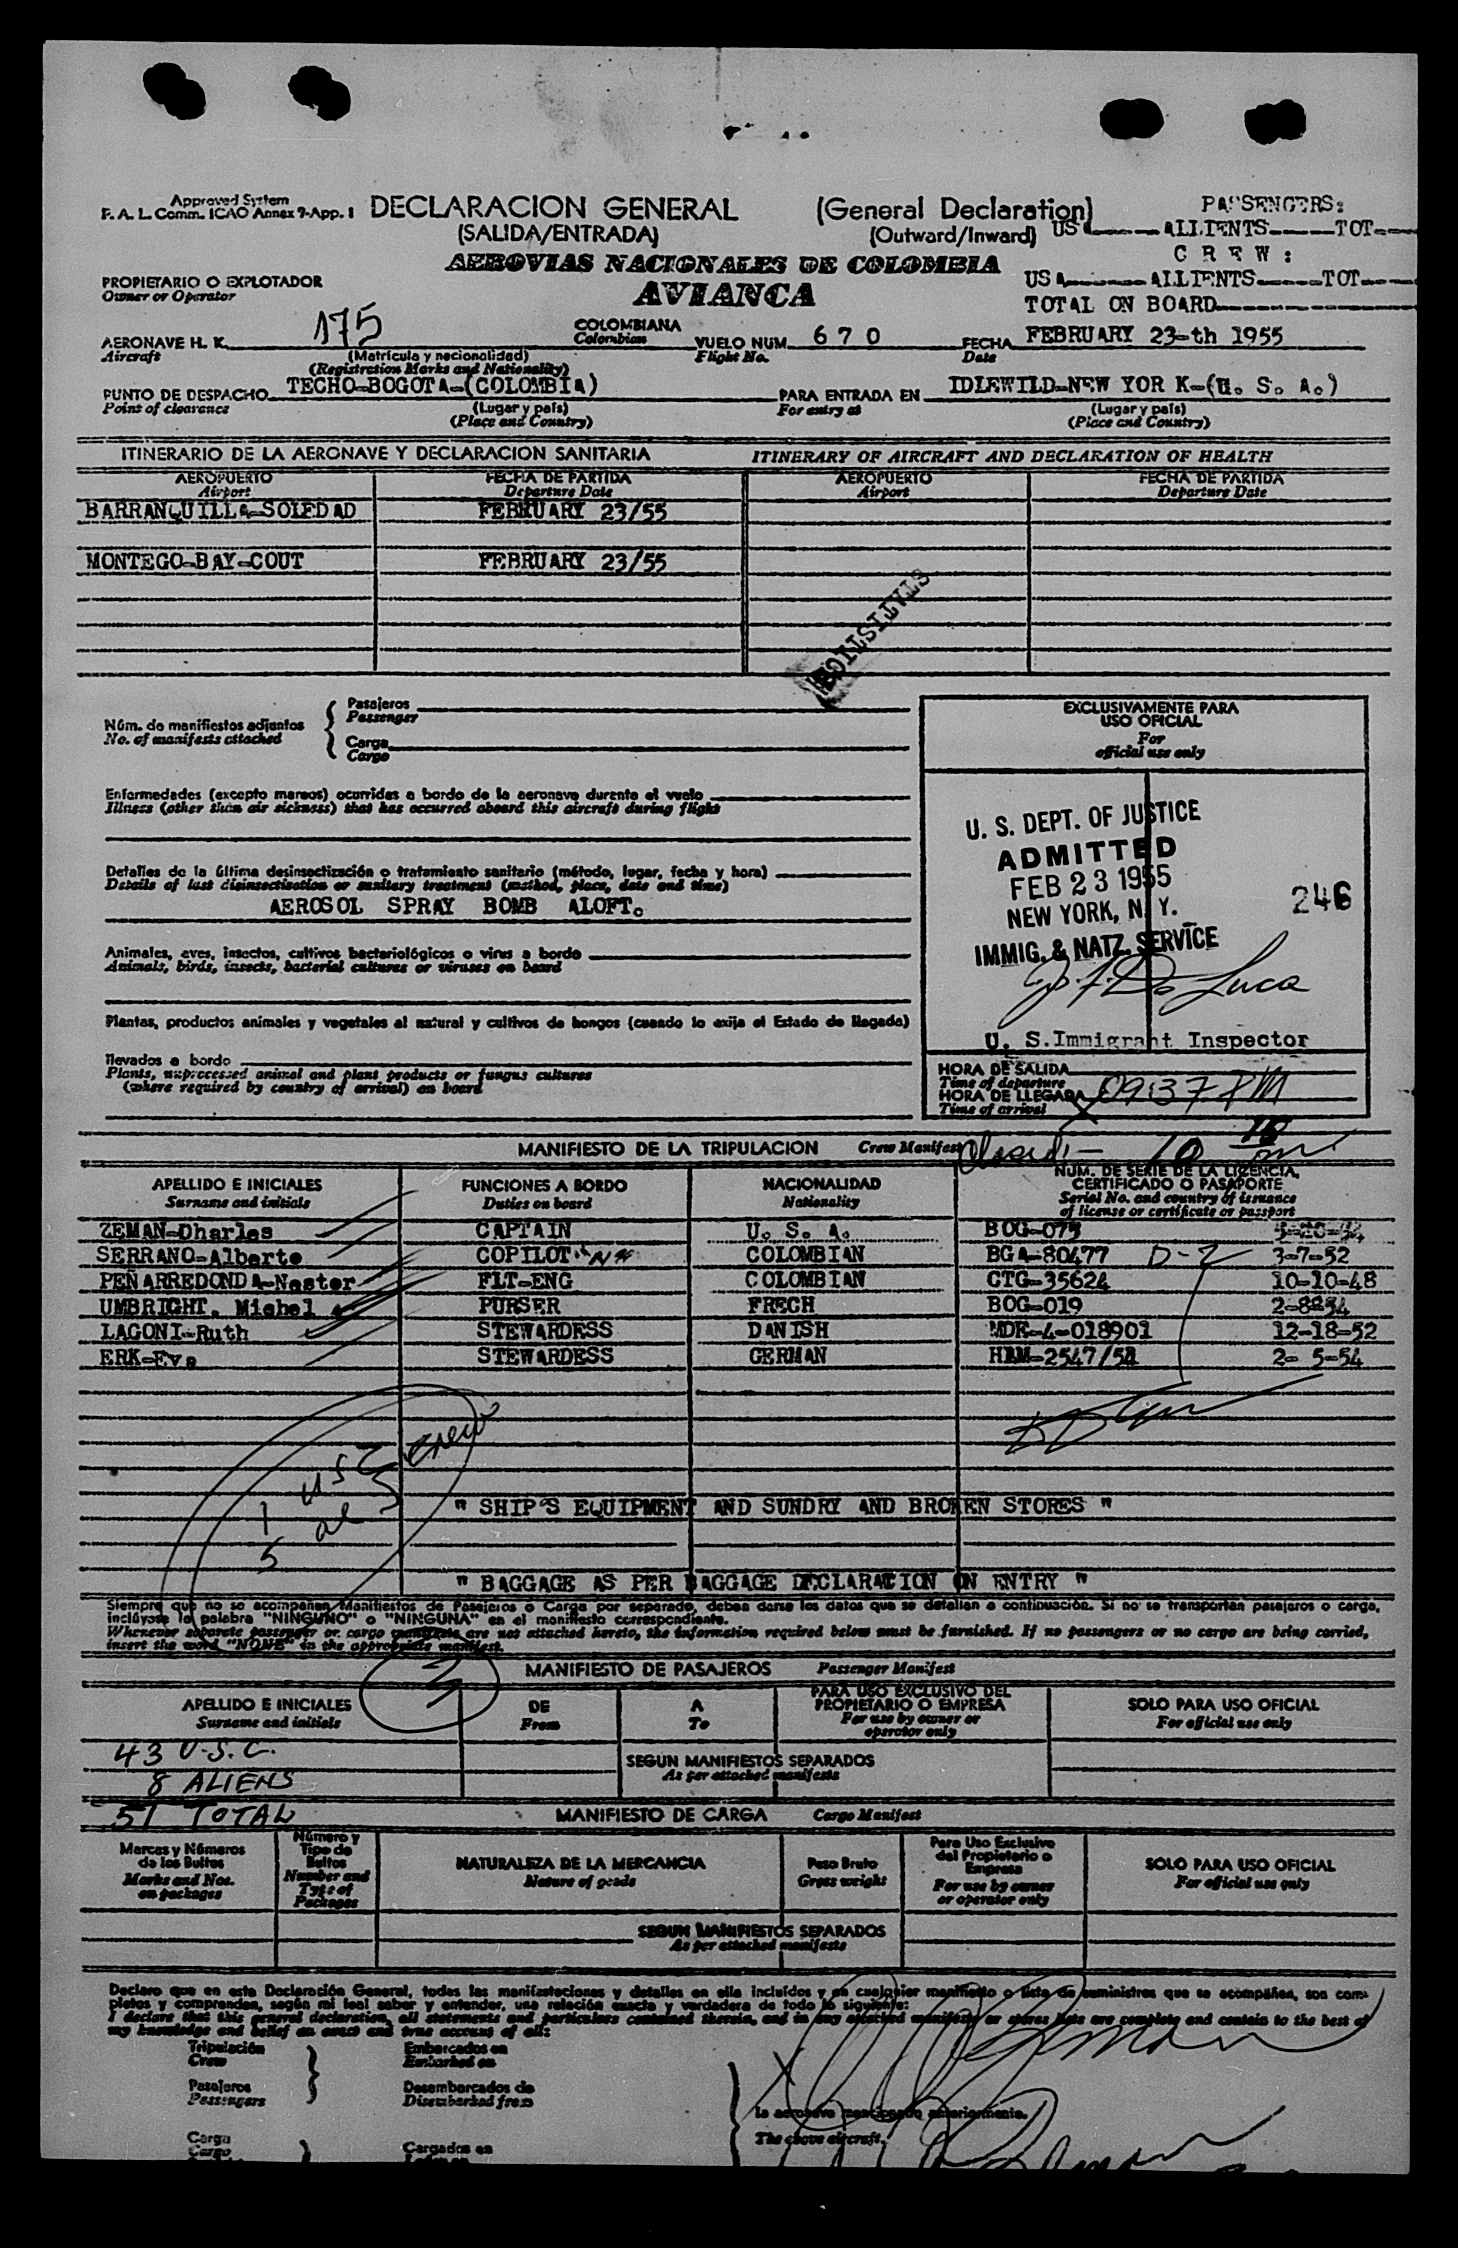 Approved System
F. A. L. Comm. ICAO Annex 9-App. 1
DECLARACION GENERAL (General Declaration)
(SALIDA/ENTRADA) (Outward/Inward)
AEROVIAS NACIONALES DE COLOMBIA
AVIANCA
PASSENGERS:
US ALLIENTS TOT
C R E W :
USA ALLIENTS TOT
TOTAL ON BOARD
PROPIETARIO O EXPLOTADOR
Owner or Operator
AERONAVE H. K. 175 COLOMBIANA VUELO NUM. 6 7 0 FECHA FEBRUARY 23-th 1955
Aircraft Colombian Flight No. Date
(Matrícula y nacionalidad)
(Registration Marks and Nationality)
PUNTO DE DESPACHO TECHO-BOGOTA-(COLOMBIA) PARA ENTRADA EN IDLEWILD-NEW YOR K-(U. S. A.)
Point of clearance (Lugar y país) For entry at (Lugar y país)
(Place and Country) (Place and Country)
ITINERARIO DE LA AERONAVE Y DECLARACION SANITARIA ITINERARY OF AIRCRAFT AND DECLARATION OF HEALTH
AEROPUERTO FECHA DE PARTIDA AEROPUERTO FECHA DE PARTIDA
Airport Departure Date Airport Departure Date
BARRANQUILLA-SOLEDAD FEBRUARY 23/55
MONTEGO-BAY-COUT FEBRUARY 23/55
STATISTICS
Núm. de manifiestos adjuntos
No. of manifests attached
Pasajeros
Passenger
Carga
Cargo
Enfermedades (excepto mareos) ocurridas a bordo de la aeronave durante el vuelo
Illness (other than air sickness) that has occurred aboard this aircraft during flight
Detalles de la última desinsectización o tratamiento sanitario (método, lugar, fecha y hora)
Details of last disinsectisation or sanitary treatment (method, place, date and time)
AEROSOL SPRAY BOMB ALOFT.
Animales, aves, insectos, cultivos bacteriológicos o virus a bordo
Animals, birds, insects, bacterial cultures or viruses on board
Plantas, productos animales y vegetales al natural y cultivos de hongos (cuando lo exija el Estado de llegada)
llevados a bordo
Plants, unprocessed animal and plant products or fungus cultures
(where required by country of arrival) on board
EXCLUSIVAMENTE PARA
USO OFICIAL
For
official use only
U. S. DEPT. OF JUSTICE
ADMITTED
FEB 23 1955
NEW YORK, N. Y.
IMMIG. & NATZ. SERVICE
246
U. S. Immigrant Inspector
HORA DE SALIDA
Time of departure
HORA DE LLEGADA 09:37 PM
Time of arrival
MANIFIESTO DE LA TRIPULACION Crew Manifest
APELLIDO E INICIALES FUNCIONES A BORDO NACIONALIDAD NUM. DE SERIE DE LA LICENCIA, CERTIFICADO O PASAPORTE
Surname and initials Duties on board Nationality Serial No. and country of issuance
of license or certificate or passport
ZEMAN-Dharles CAPTAIN U. S. A. BOG-075
SERRANO-Alberto COPILOT COLOMBIAN BGA-80477 D-2 3-7-52
PEÑARREDONDA-Nestor FLT-ENG COLOMBIAN CTG-35624 10-10-48
UMBRIGHT. Michel PURSER FRECH BOG-019
LAGONI-Ruth STEWARDESS DANISH MDE-4-018901 12-18-52
ERK-Eva STEWARDESS GERMAN 2- 5-54
1 USC
5 al
crew
" SHIP'S EQUIPMENT AND SUNDRY AND BROKEN STORES "
" BAGGAGE AS PER BAGGAGE DECLARATION ON ENTRY "
Siempre que no se acompañen Manifiestos de Pasajeros o Carga por separado, deben darse los datos que se detallan a continuación. Si no se transportan pasajeros o carga,
inclúyase la palabra "NINGUNO" o "NINGUNA" en el manifiesto correspondiente.
Whenever separate passenger or cargo manifests are not attached hereto, the information required below must be furnished. If no passengers or no cargo are being carried,
insert the word "NONE" in the appropriate manifest.
MANIFIESTO DE PASAJEROS Passenger Manifest
APELLIDO E INICIALES DE A PARA USO EXCLUSIVO DEL PROPIETARIO O EMPRESA SOLO PARA USO OFICIAL
Surname and initials From To For use by owner or operator only For official use only
43 U.S.C.
8 ALIENS
51 TOTAL
SEGUN MANIFIESTOS SEPARADOS
As per attached manifests
MANIFIESTO DE CARGA Cargo Manifest
Marcas y Números de los Bultos Número y Tipo de Bultos NATURALEZA DE LA MERCANCIA Peso Bruto Para Uso Exclusivo del Propietario o Empresa SOLO PARA USO OFICIAL
Marks and Nos. on packages Number and Type of Packages Nature of goods Gross weight For use by owner or operator only For official use only
SEGUN MANIFIESTOS SEPARADOS
As per attached manifests
Declaro que en esta Declaración General, todas las manifestaciones y detalles en ella incluídos y en cualquier manifiesto o lista de suministros que se acompañen, son com-
pletos y comprenden, según mi leal saber y entender, una relación exacta y verdadera de todo lo siguiente:
I declare that this general declaration, all statements and particulars contained therein, and in any attached manifests or stores lists are complete and contain to the best of
my knowledge and belief an exact and true account of all:
Tripulación Embarcados en
Crew Embarked on
Pasajeros Desembarcados de
Passengers Disembarked from
la aeronave mencionada anteriormente.
The above aircraft.
Carga Cargados en
Cargo